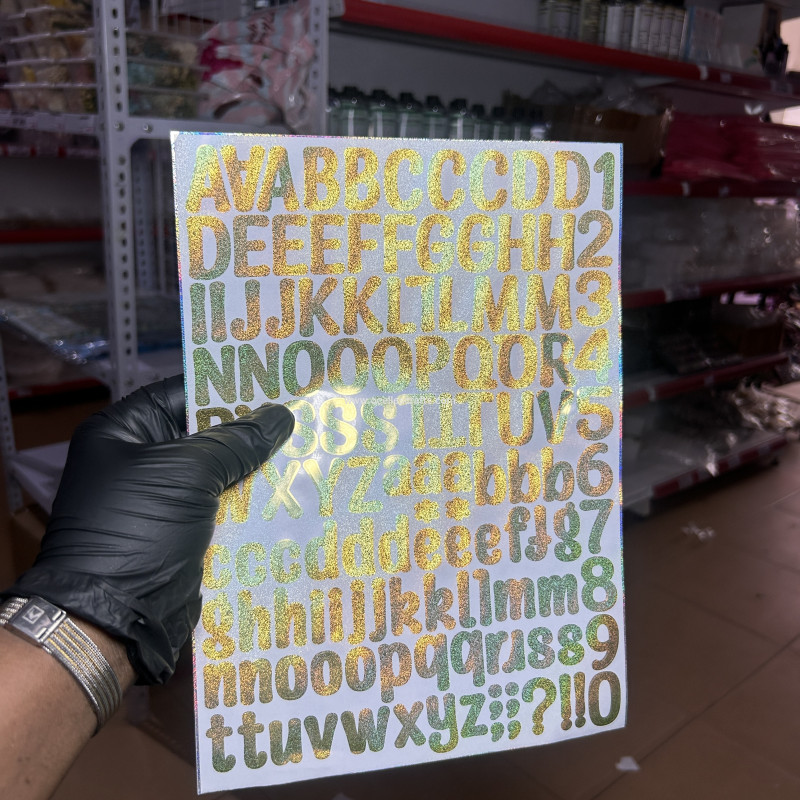 AAABBCCCDD1
DEEEFFGGHH2
IIJJKKLLLMM3
NNOOOPQOR4
SSSTTTUV5
WXYZaaabbb6
cccdddeeeffg7
ghhiijjkkllmm8
nnooopqqrrsss9
ttuvwxyz;;?!!0